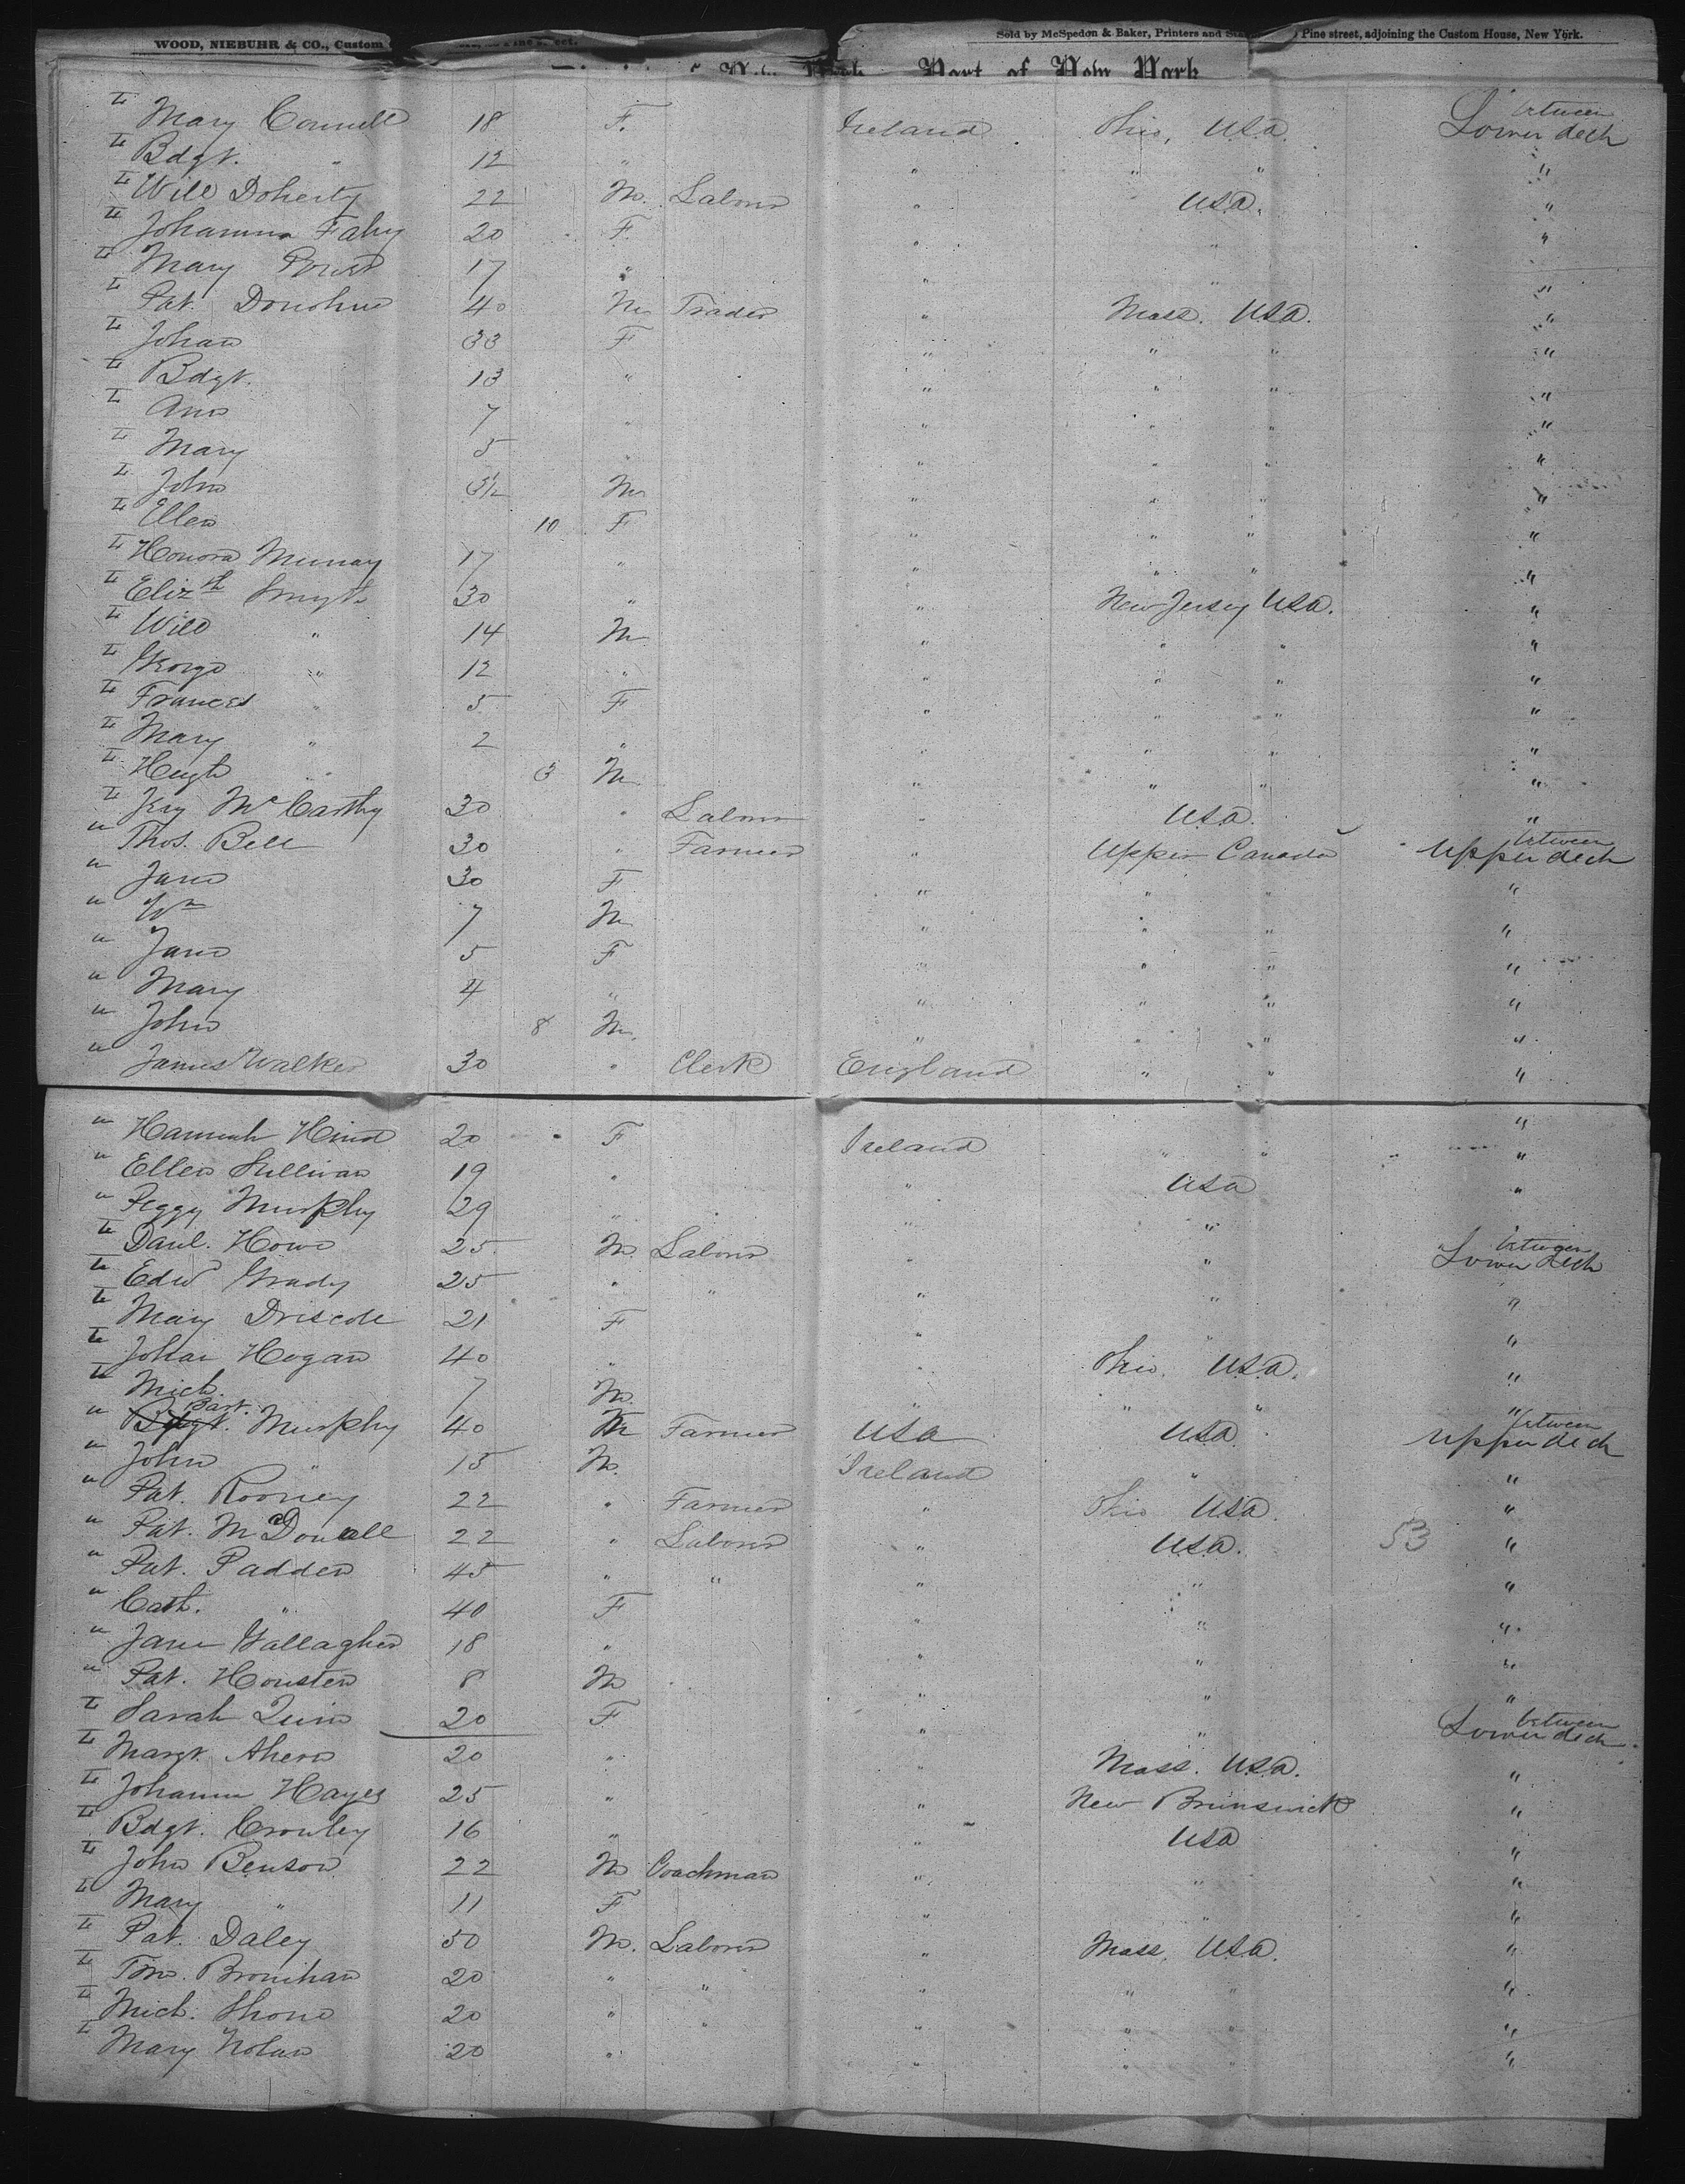 WOOD, NIEBUHR & CO., Custom
Sold by McSpedon & Baker, Printers and Pine street, adjoining the Custom House, New York.
Port of New York
L Mary Connell 18 F. Ireland Ohio, USA. Lower between deck
L Bdgt. " 12 " " " " "
L Will Doherty 22 M. Labour " USA. "
L Johanna Fahy 20 F. " " "
L Mary Power 17 " " " "
L Pat. Donohue 40 M Trader " Mass. USA. "
L Johan 33 F " " " "
L Bdgt. 13 " " " " "
L Ann 7 " " " " "
L Mary 5 " " " " "
L John 3½ M " " " "
L Ellen 10 F " " " "
L Honora Murray 17 " " " " "
L Elizth Smyth 30 " " New Jersey USA. "
L Will " 14 M " " " "
L George " 12 " " " " "
L Frances " 5 F " " " "
L Mary " 2 " " " " "
L Hugh " 3 M " " " "
L Jery McCarthy 30 " Labour " USA. "
u Thos. Bell 30 " Farmer " Upper Canada Upper between deck
u Jane 30 F " " " "
u Wm 7 M " " " "
u Jane 5 F " " " "
u Mary 4 " " " " "
u John 8 M. " " " "
u James Walker 30 " Clerk England " " "
u Hannah Hind 20 F Ireland " " "
u Ellen Sullivan 19 " " USA "
u Peggy Murphy 29 " " " "
L Danl. Howe 25 M. Labour " " Lower between deck
L Edwd Grady 25 " " " " "
L Mary Driscoll 21 F " " "
L Johan Hogan 40 " " Ohio. USA. "
L Mich. 7 M. " " " "
u Bdgt. Bart. Murphy 40 M Farmer USA USA. Upper between deck
u John " 15 M. Ireland " "
u Pat. Rooney 22 " Farmer " Ohio USA. "
u Pat. McDonall 22 " Labour " USA. 53 "
u Pat. Padden 45 " " " " "
u Cath. " 40 F " " "
u Jane Gallagher 18 " " " "
u Pat. Housten 8 M " " "
L Sarah Quin 20 F " " Lower between deck
L Margt. Ahern 20 " " Mass. USA. "
L Johanna Hayes 25 " " New Brunswick "
L Bdgt. Crowley 16 " " USA "
L John Benson 22 M Coachman " " "
L Mary " 11 F " " "
L Pat. Daley 50 M. Labour " Mass. USA. "
L Tim. Bronihan 20 " " " " " "
L Mich. Shone 20 " " " " " "
L Mary Nolan 20 " " " " "